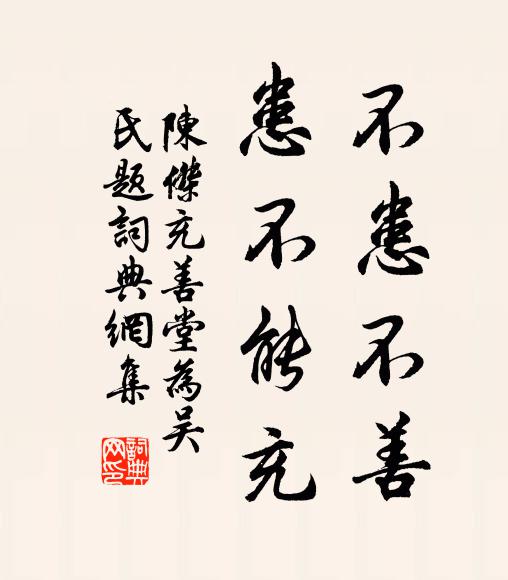 不患不善
患不能充
陳傑充善堂為吴
氏題詞典網集
詞典網印